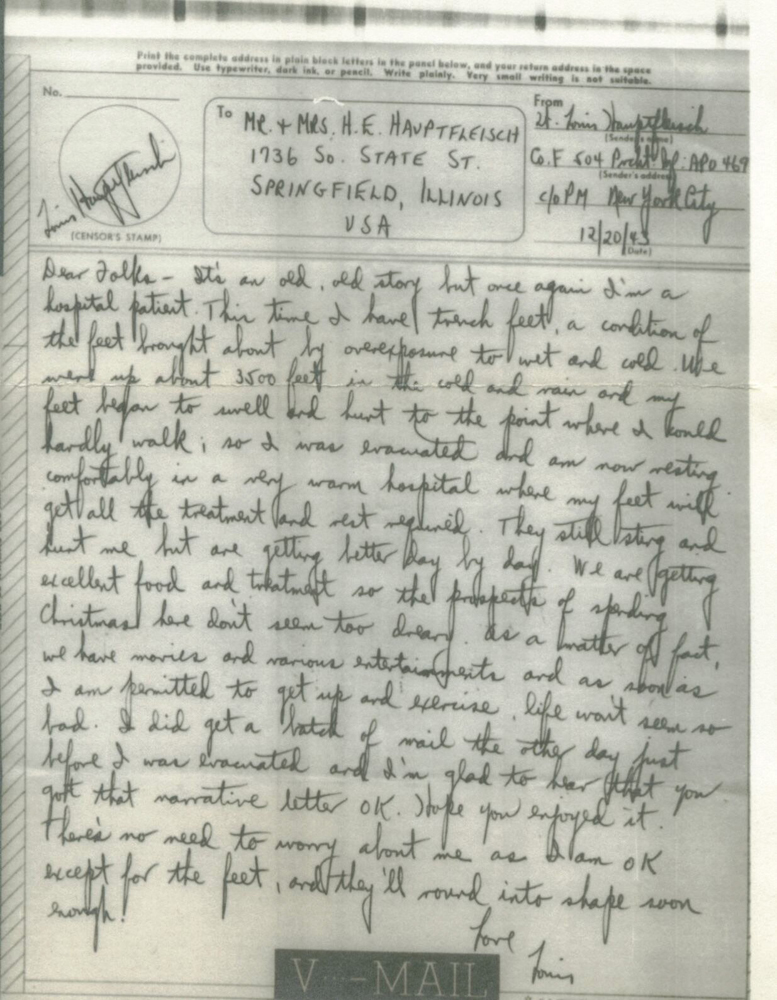 Print the complete address in plain block letters in the panel below, and your return address in the space
provided. Use typewriter, dark ink, or pencil. Write plainly. Very small writing is not suitable.
No.
(CENSOR'S STAMP)
Louis Hauptfleisch
To
MR. + MRS. H. E. HAUPTFLEISCH
1736 So. STATE ST.
SPRINGFIELD, ILLINOIS
USA
From
Lt. Louis Hauptfleisch
(Sender's name)
Co. F 504 Prcht Inf: APO 469
(Sender's address)
c/o PM New York City
12/20/43
(Date)
Dear Folks - It's an old, old story but once again I'm a
hospital patient. This time I have trench feet, a condition of
the feet brought about by overexposure to wet and cold. We
were up about 3500 feet in the cold and rain and my
feet began to swell and hurt to the point where I could
hardly walk; so I was evacuated and am now resting
comfortably in a very warm hospital where my feet will
get all the treatment and rest required. They still sting and
hurt me but are getting better day by day. We are getting
excellent food and treatment so the prospects of spending
Christmas here don't seem too dreary. As a matter of fact,
we have movies and various entertainments and as soon as
I am permitted to get up and exercise, life won't seem so
bad. I did get a batch of mail the other day just
before I was evacuated and I'm glad to hear that you
got that narrative letter OK. Hope you enjoyed it.
There's no need to worry about me as I am OK
except for the feet, and they'll round into shape soon
enough!
Love
Louis
V···-MAIL